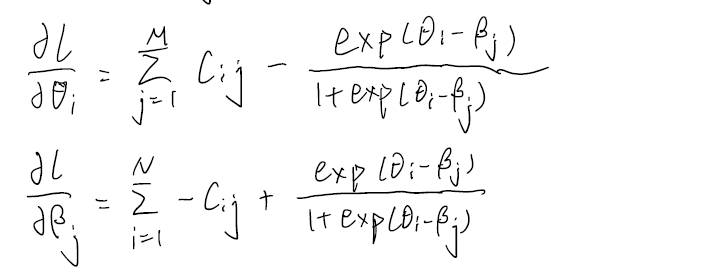 ∂l/∂θ_i = Σ_{j=1}^{M} C_{ij} - exp(θ_i - β_j) / (1 + exp(θ_i - β_j))
∂l/∂β_j = Σ_{i=1}^{N} - C_{ij} + exp(θ_i - β_j) / (1 + exp(θ_i - β_j))